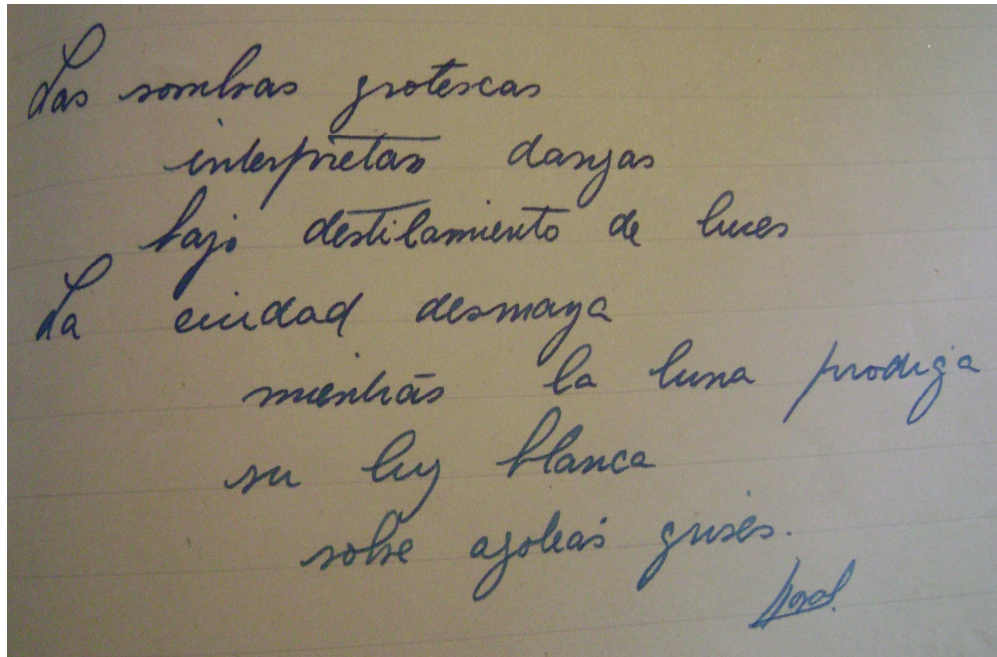 Las sombras grotescas
interpretan danzas
bajo destilamiento de luces
La ciudad desmaya
mientras la luna prodiga
su luz blanca
sobre azoteas grises.